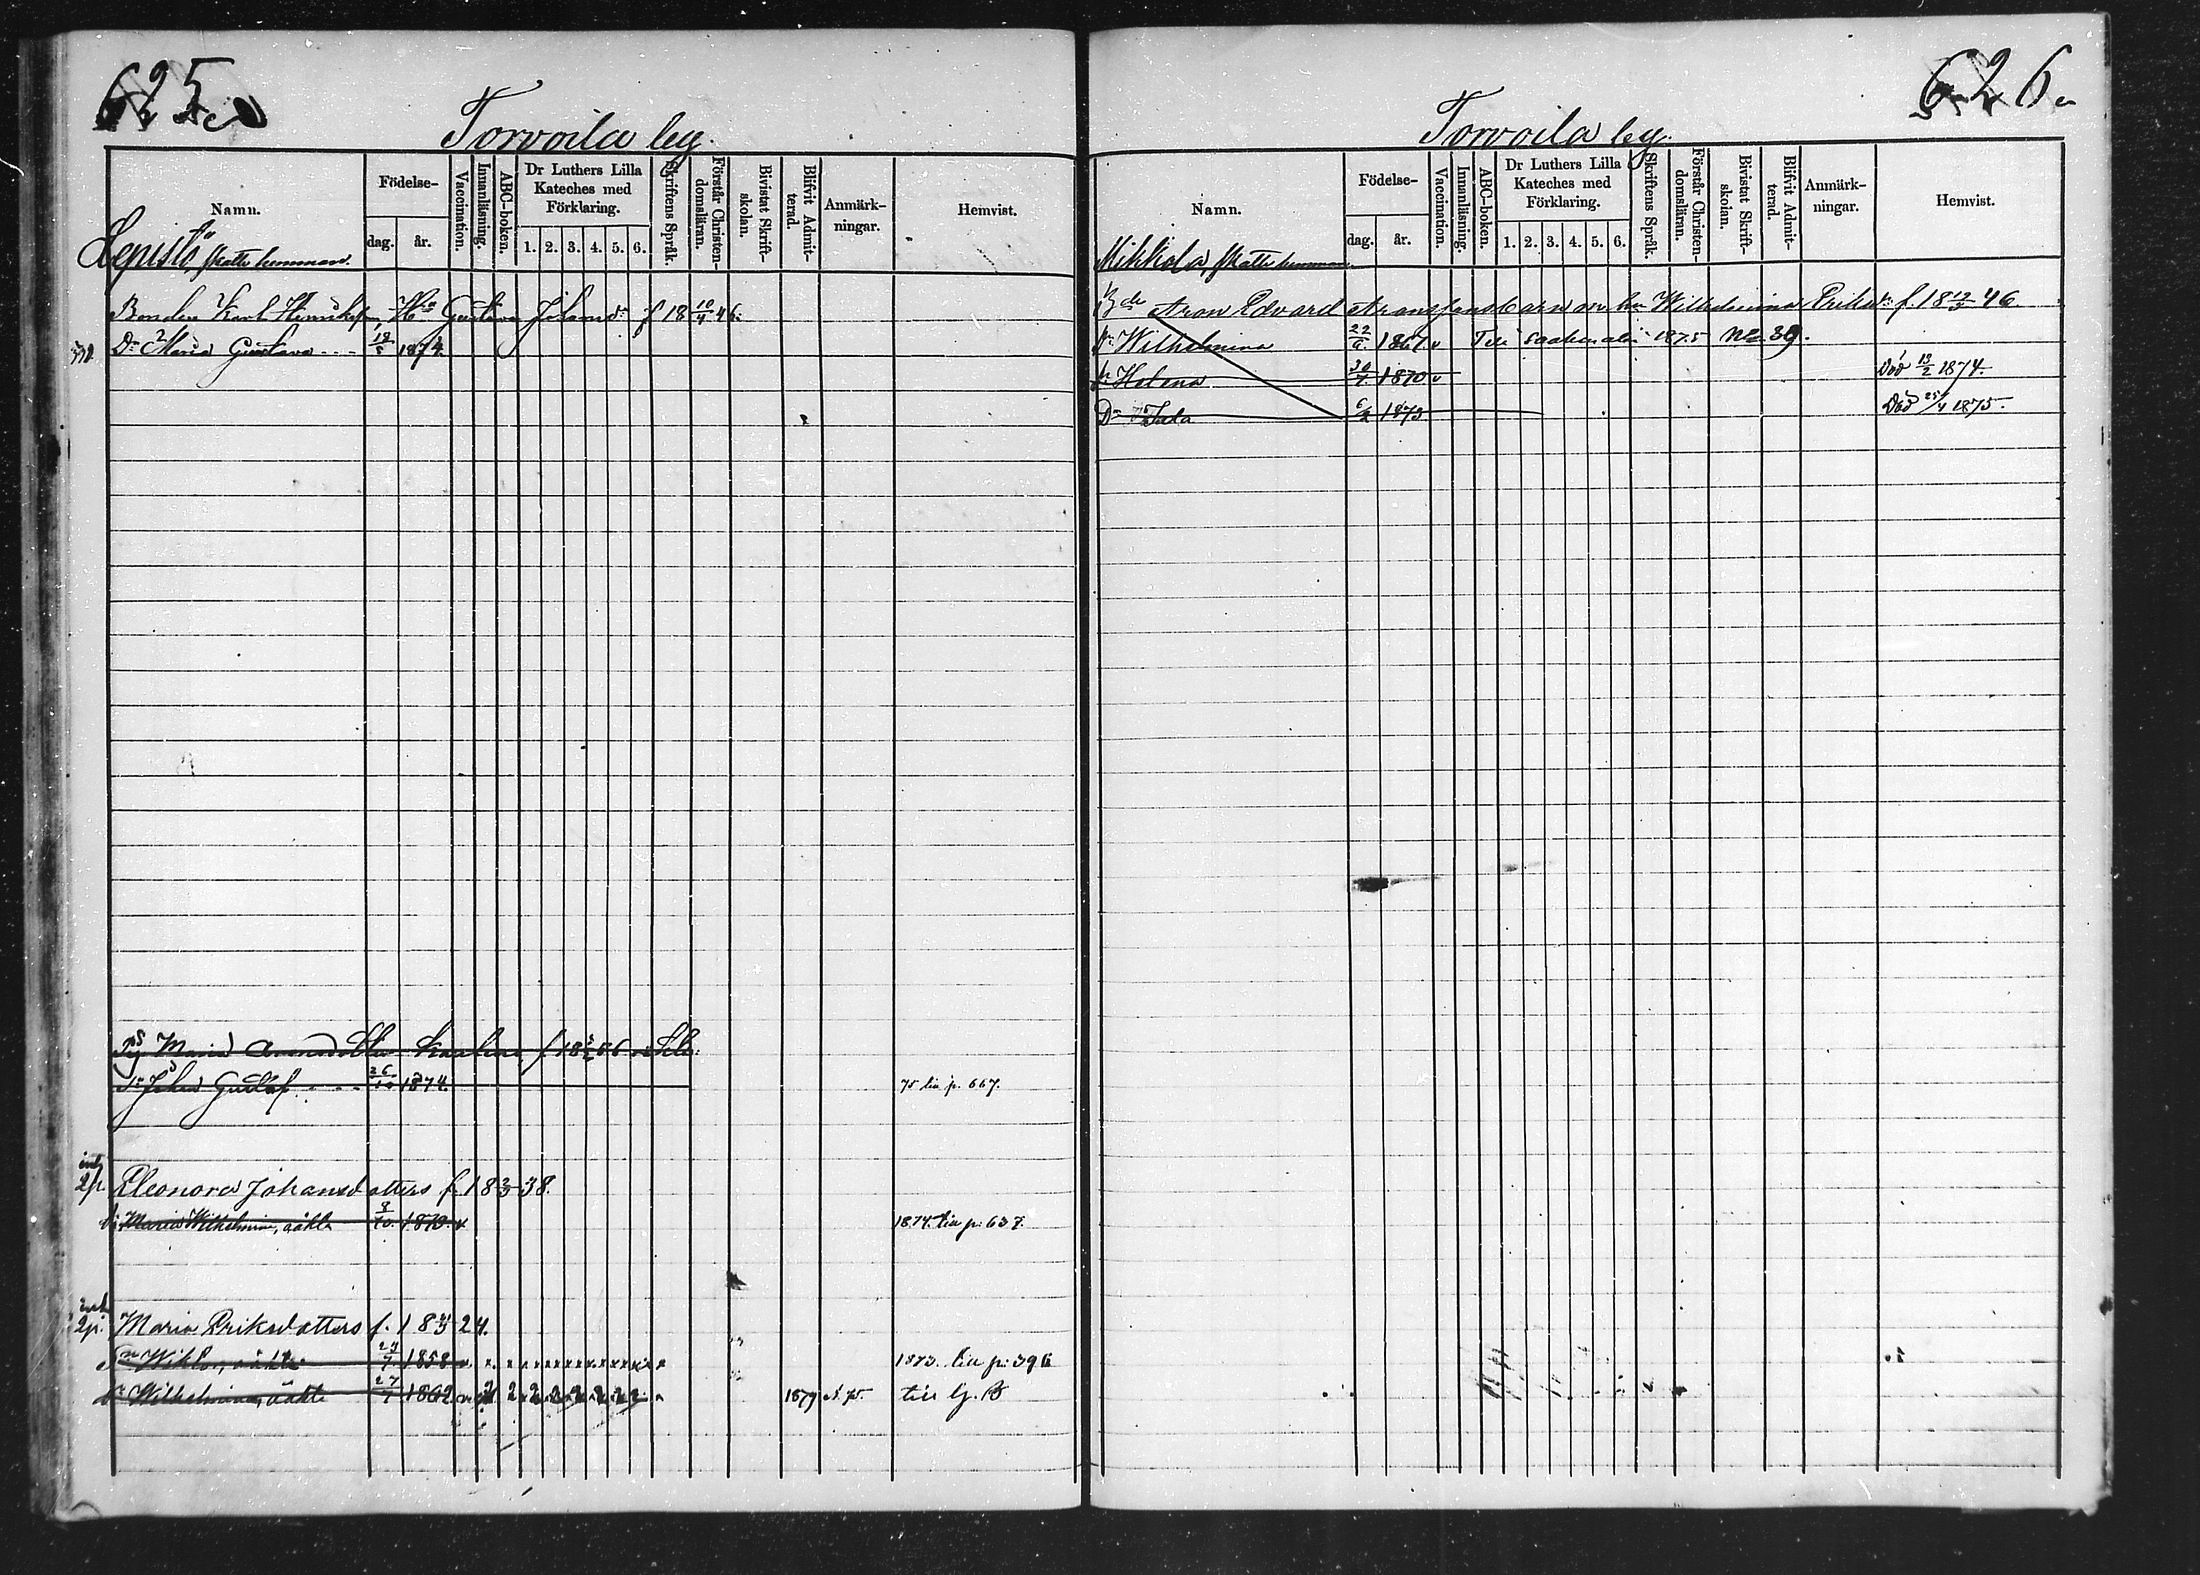 625
Torvoila by.
Namn.
Födelse-
dag.
år.
Vaccination.
Innanläsning.
ABC-boken.
Dr Luthers Lilla
Kateches med
Förklaring.
1. 2. 3. 4. 5. 6.
Skriftens Språk.
Förstår Christen-
domsläran.
Bivistat Skrift-
skolan.
Blifvit Admit-
terad.
Anmärk-
ningar.
Hemvist.
Lepistö, skatte hemman.
Bonden Karl Henriks Gustava Johansdr f 18 10/4 46.
Dr Maria Gustava 1874.
Maria
Sn Johan Gustaf 26/10 1874. 75 till p. 667.
2/p. Eleonora Johansdotters f. 18 38.
Dr Maria Wilhelmina, oäkta 8/10. 1870. v 1874. till p. 637.
2/p. Maria Eriksdotters f. 18 24.
Sn Wiktor, oäkta 1858 v. 1873. till p. 396
Dr Wilhelmina, oäkta 27/7 1862 v 2 2 2 2 2 2 2 2 1879 till
626
Torvoila by.
Namn.
Födelse-
dag.
år.
Vaccination.
Innanläsning.
ABC-boken.
Dr Luthers Lilla
Kateches med
Förklaring.
1. 2. 3. 4. 5. 6.
Skriftens Språk.
Förstår Christen-
domsläran.
Bivistat Skrift-
skolan.
Blifvit Admit-
terad.
Anmärk-
ningar.
Hemvist.
Mikkola, skatte hemman.
Bde Aron Edvard Aronssons barn Wilhelmina Eriksdr f. 18 46.
Dr Wilhelmina 22/6. 1867. v Till 1875 No 39.
Dr Helena 30/7 1870 v Död 13/2 1874.
Dr Ida 6/2 1873 Död 25/4 1875.